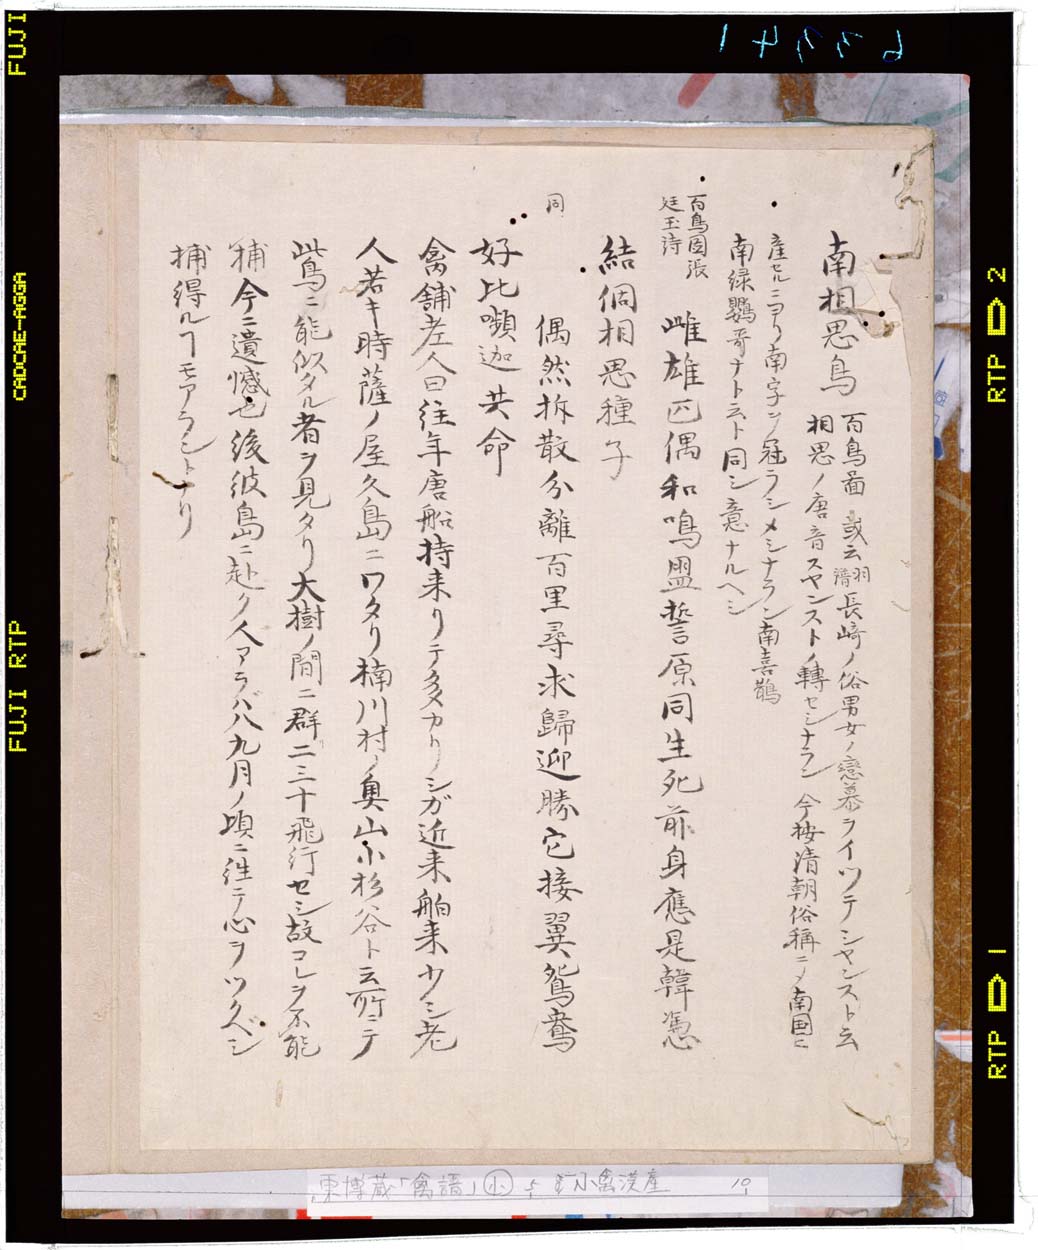 南相思鳥 百鳥啚 或云羽譜長崎ノ俗男女ノ戀慕ヲイツテシヤンスト云
相思ノ唐音スヤンストノ轉セシナラン 今按清朝俗稱ニ〆南国ニ
産セルニヨリ南字ヲ冠ラシメシナラン南喜鵲
南緑鸚哥ナト云ト同シ意ナルヘシ
百鳥図張
廷玉詩
雌雄匹偶和鳴盟誓原同生死前身應是韓憑
結個相思種子
偶然拆散分離百里尋求歸迎勝它接翼鴛鴦
同
好比嚬迦共命
禽舗老人曰往年唐船持来リテ多カリシガ近来舶来少シ老
人若キ時薩ノ屋久島ニワタリ楠川村ノ奥山小杉谷ト云所ニテ
此鳥ニ能似タル者ヲ見タリ大樹ノ間ニ群二三十飛行セシ故コレヲ不能
捕今ニ遺憾也後彼島ニ赴ク人アラバ八九月ノ頃ニ往テ心ヲツクベシ
捕得ルヿモアラントナリ
東博蔵「禽譜」小 5 小禽漢産 10
63341
FUJI
CADCAE-AGGA
FUJI RTP
RTP D 2
RTP D 1